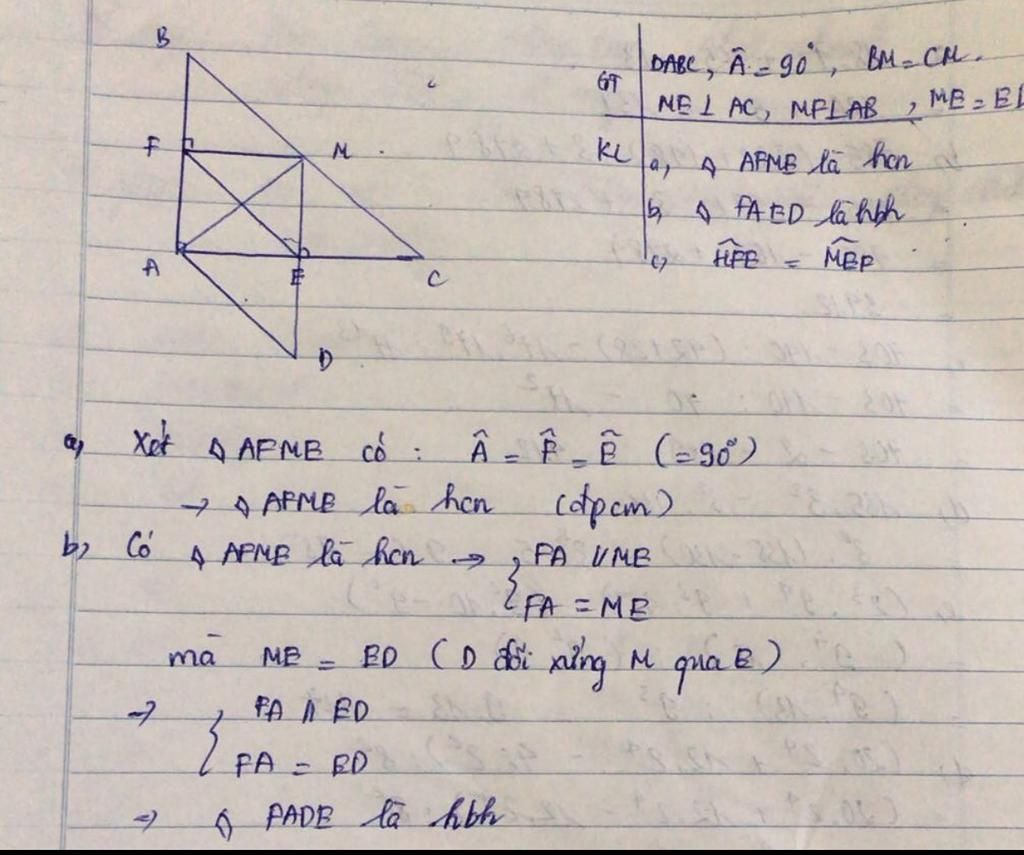 B
F
M
A
E
C
D
GT
DABC, Â = 90°, BM = CM.
ME ⊥ AC, MF ⊥ AB, ME = ED
KL
a, ◊ AFME là hcn
b, ◊ FAED là hbh
c, HFE = MEF
a, Xét ◊ AFME có : Â = F̂ = Ê (= 90°)
→ ◊ AFME là hcn (đpcm)
b, Có ◊ AFME là hcn → { FA // ME
FA = ME
mà ME = ED ( D đối xứng M qua E )
→ { FA // ED
FA = ED
⇒ ◊ FADE là hbh